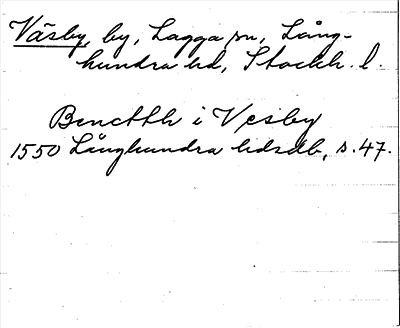 Väsby, by, Lagga sn, Lång-
hundra hd, Stockh. l.
Benctth i Vesby
1550 Långhundra hdsdb, s. 47.